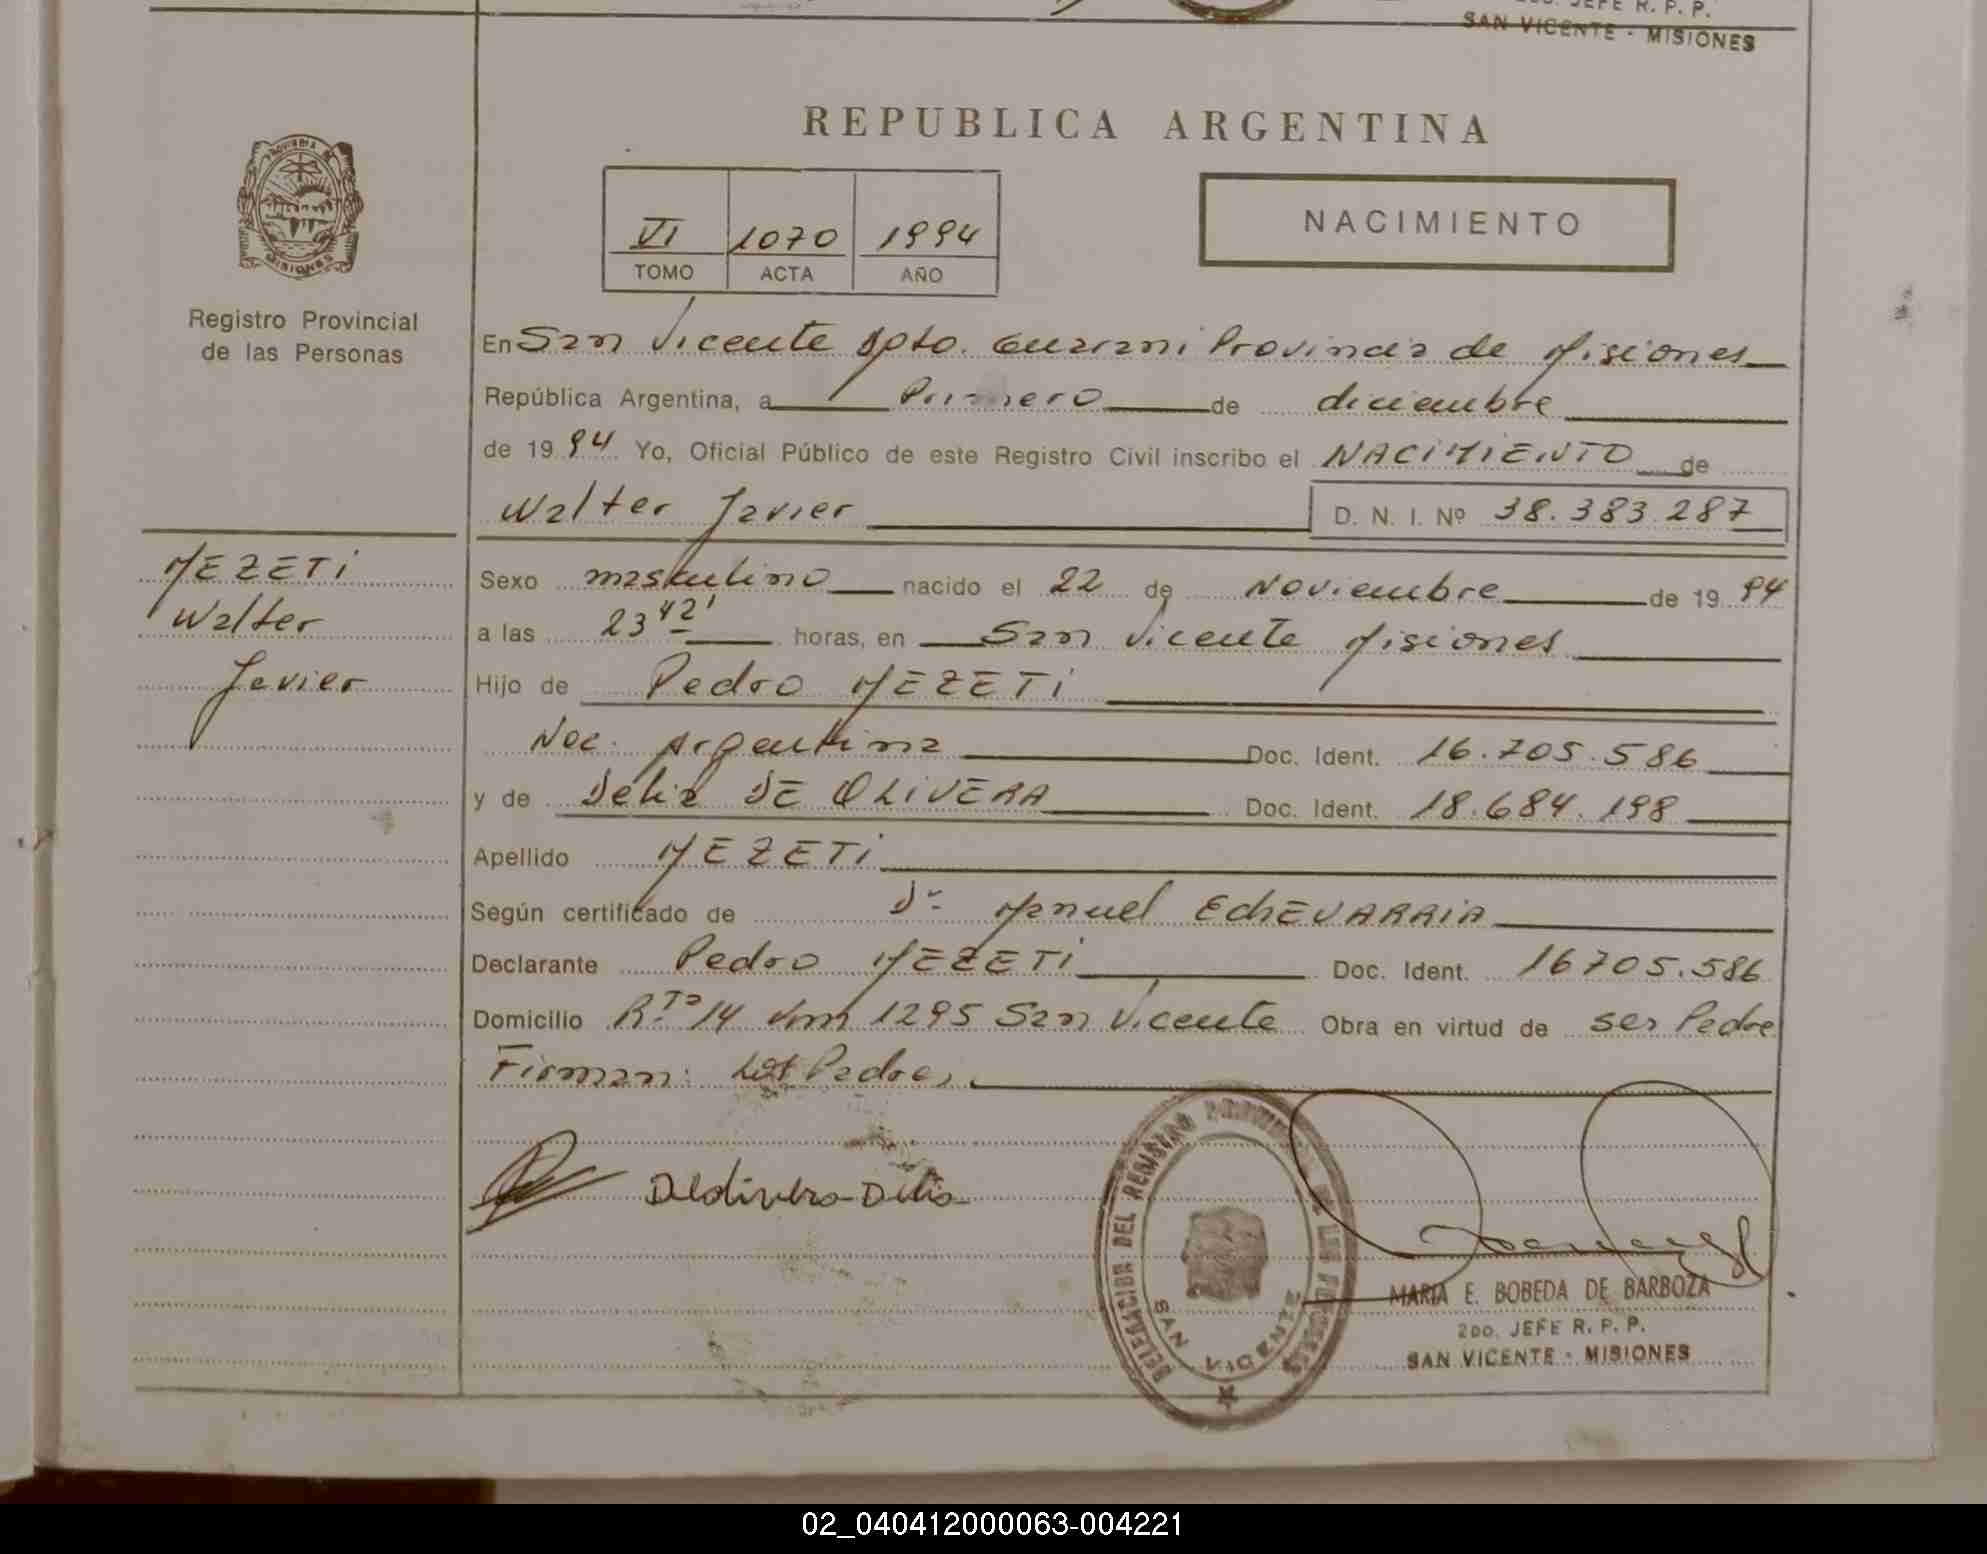 2do. JEFE R. P. P.
SAN VICENTE - MISIONES
REPUBLICA ARGENTINA
VI 1070 1994
TOMO ACTA AÑO
NACIMIENTO
Registro Provincial
de las Personas
PROVINCIA DE
MISIONES
En San Vicente Dpto. Guarani Provincia de Misiones
República Argentina, a Primero de diciembre
de 1994 Yo, Oficial Público de este Registro Civil inscribo el NACIMIENTO de
Walter Javier D. N. I. Nº 38.383.287
MEZETi
Walter
Javier
Sexo masculino nacido el 22 de Noviembre de 1994
a las 23 42' horas, en San Vicente Misiones
Hijo de Pedro MEZETi
Nac. Argentina Doc. Ident. 16.705.586
y de Delia DE OLIVERA Doc. Ident. 18.684.198
Apellido MEZETi
Según certificado de Dr Manuel EchEVARRiA
Declarante Pedro MEZETi Doc. Ident. 16705.586
Domicilio Rta 14 km 1295 San Vicente Obra en virtud de ser Padre
Firman: Los Padres
Delia
DELEGACION DEL REGISTRO PROVINCIAL DE LAS PERSONAS
SAN VICENTE
MARIA E. BOBEDA DE BARBOZA
2DO. JEFE R. P. P.
SAN VICENTE - MISIONES
02_040412000063-004221